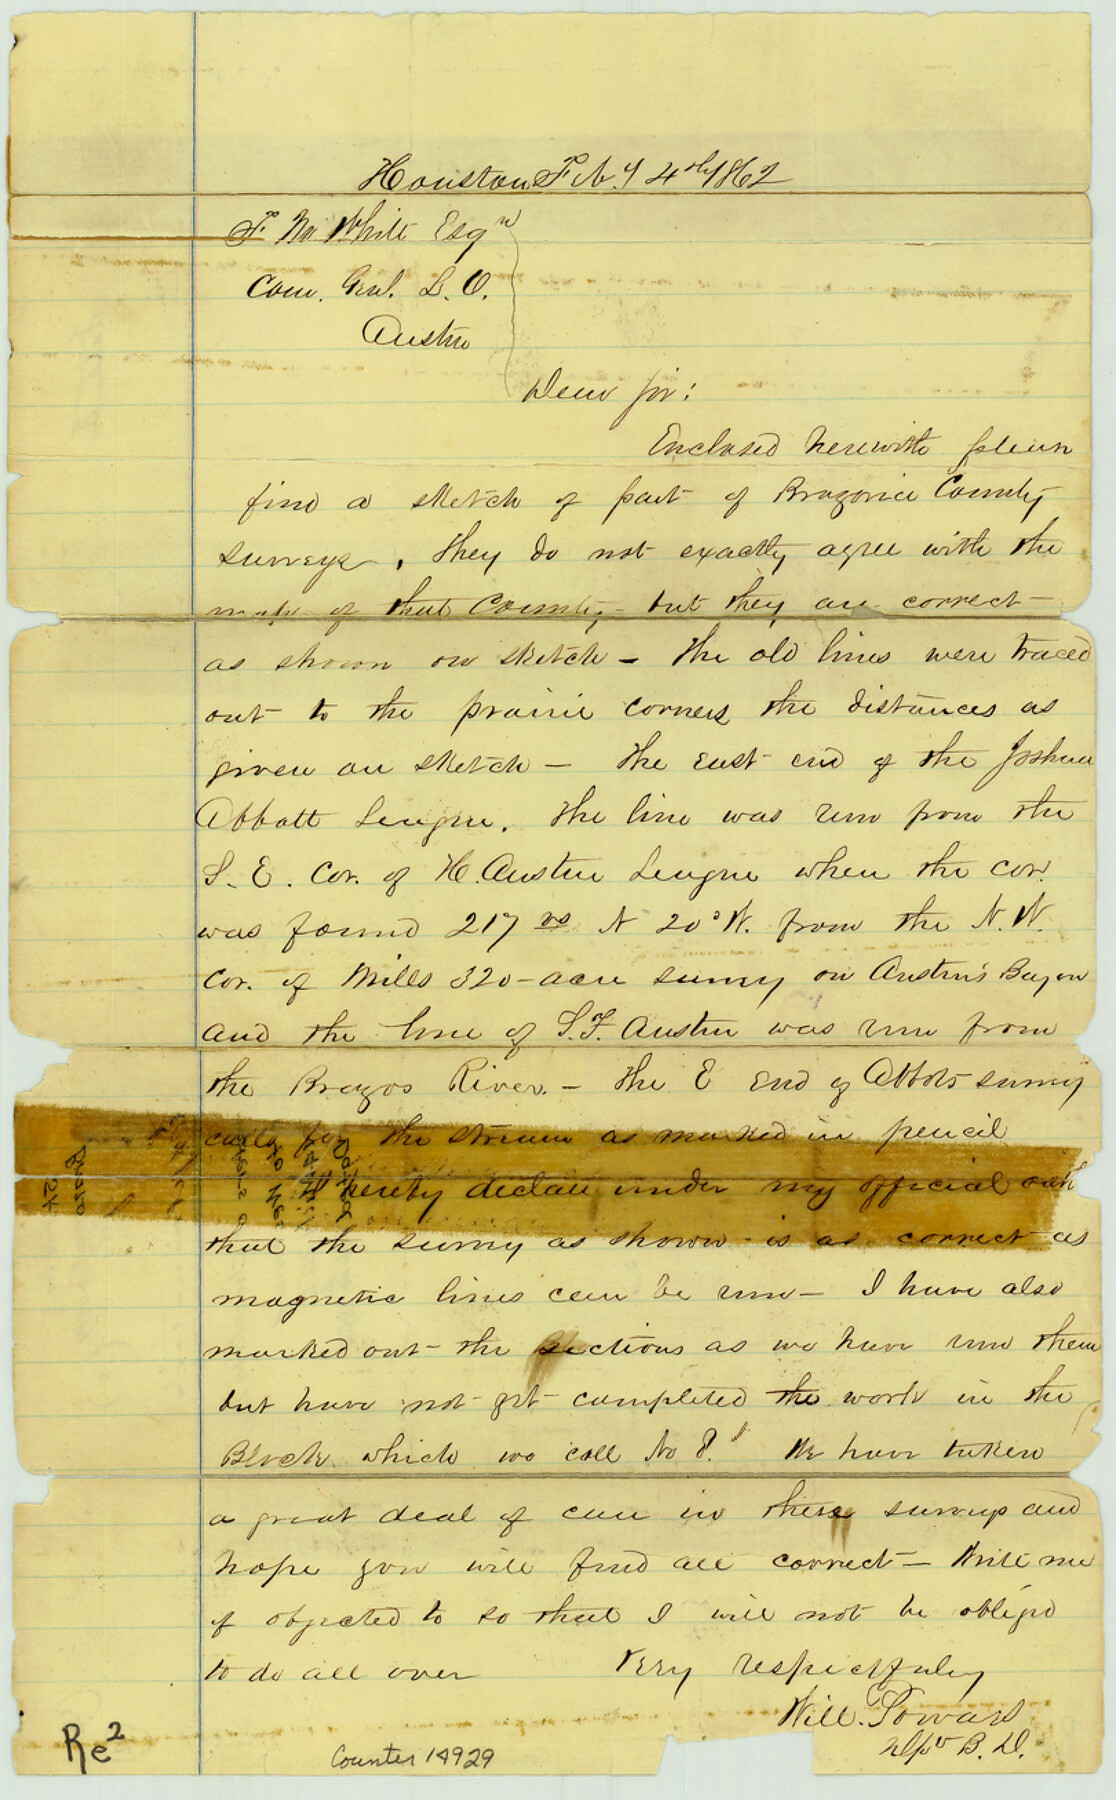 Houston Feby 4th 1862
F. M. White Esqr
Com. Genl. L. O.
Austin
Dear Sir:
Enclosed herewith please
find a sketch of part of Brazoria County
surveys, they do not exactly agree with the
maps of that County - but they are correct
as shown on sketch - The old lines were traced
out to the prairie corners the distances as
given on sketch - The East end of the Joshua
Abbott League. The line was run from the
S. E. Cor. of H. Austin League when the cor.
was found 217 vs N 20° W. from the N. W.
Cor. of Mills 320-acre survey on Austin's Bayou
and the line of S. F. Austin was run from
the Brazos River. - The E End of Abbots survey
calls for the stream as marked in pencil
I hereby declare under my official oath
that the survey as shown is as correct as
magnetic lines can be run - I have also
marked out the sections as we have run them
but have not yet completed the work in the
Block which we call No 8. We have taken
a great deal of care in these surveys and
hope you will find all correct - Write me
if objected to so that I will not be obliged
to do all over Very respectfully
Will. Powars
B. D.
Re2
Counter 14929